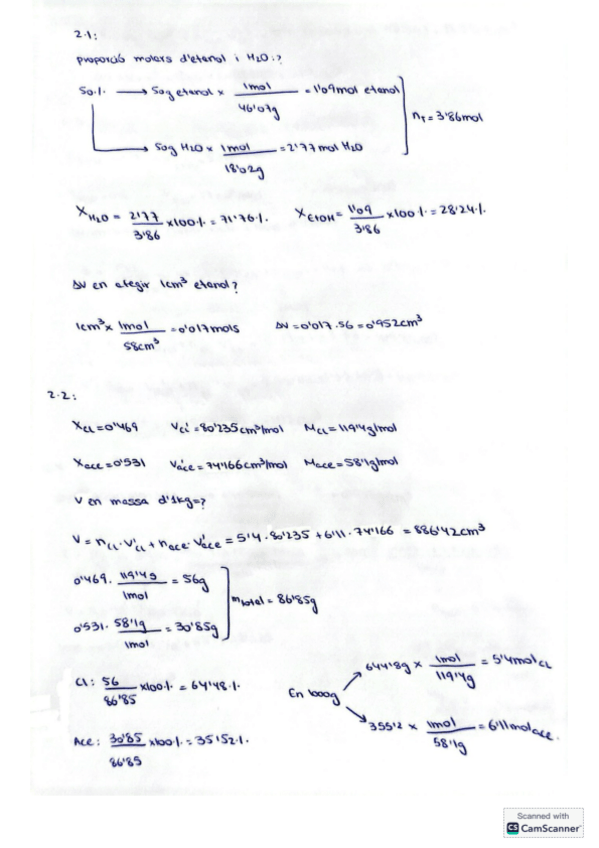 2.1:
proporció molars d'etanol i H2O.?
50% → 50g etanol × 1mol / 46'07g = 1'09mol etanol
→ 50g H2O × 1mol / 18'02g = 2'77 mol H2O
nT = 3'86mol
X H2O = 2'77 / 3'86 × 100% = 71'76%. X EtOH = 1'09 / 3'86 × 100% = 28'24%.
ΔV en afegir 1cm³ etanol?
1cm³ × 1mol / 58cm³ = 0'017mols ΔV = 0'017·56 = 0'952cm³
2.2:
XCl = 0'469 VCl = 80'235cm³/mol MCl = 119'4g/mol
Xace = 0'531 Vace = 74'166cm³/mol Mace = 58'1g/mol
V en massa d'1kg=?
V = nCl · VCl + nace · Vace = 5'4 · 80'235 + 6'11 · 74'166 = 886'42cm³
0'469 · 119'4g / 1mol = 56g
0'531 · 58'1g / 1mol = 30'85g
mtotal = 86'85g
Cl: 56 / 86'85 × 100% = 64'48%.
En 1000g
644'8g × 1mol / 119'4g = 5'4molCl
Ace: 30'85 / 86'85 × 100% = 35'52%.
355'2 × 1mol / 58'1g = 6'11molace.
Scanned with
CS CamScanner